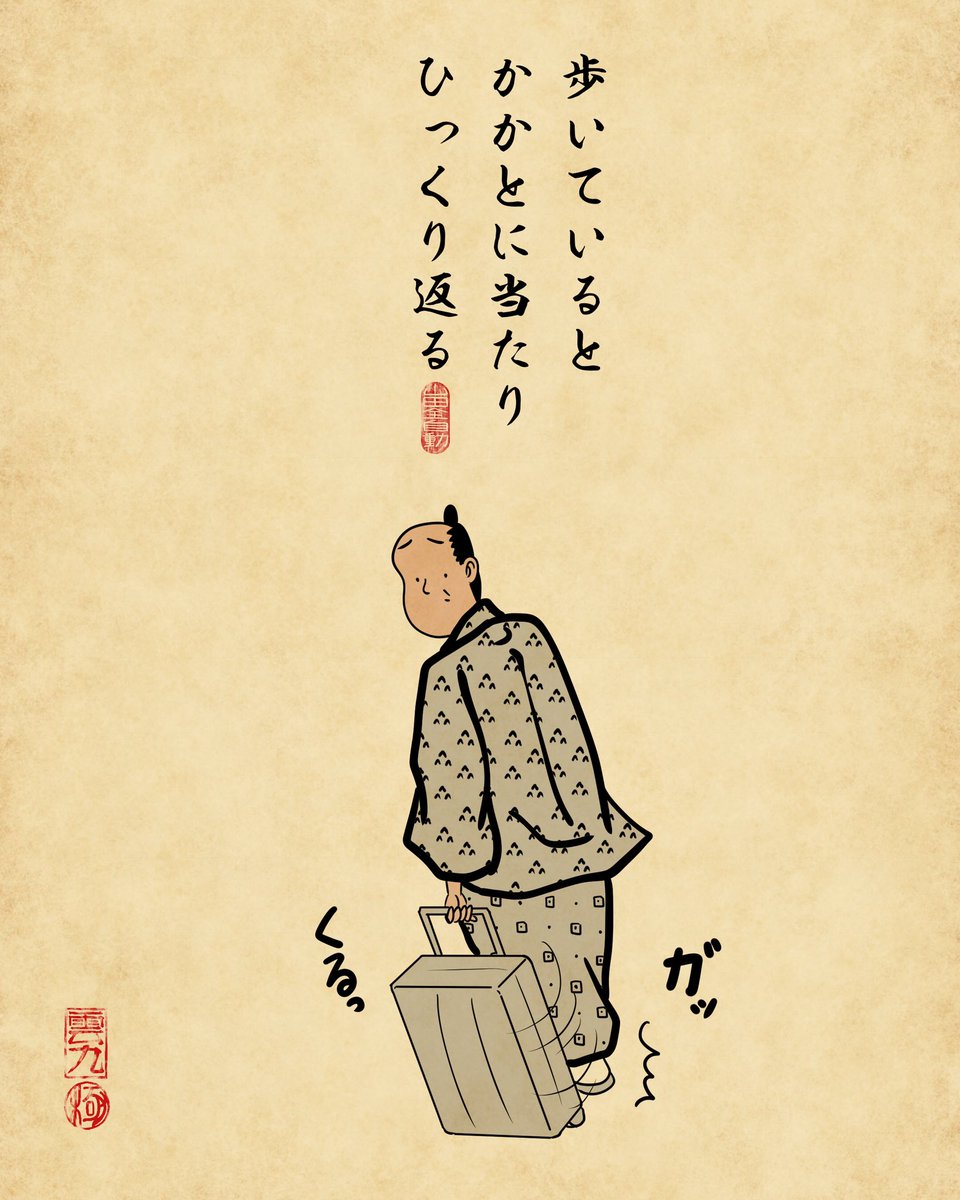 歩いていると
かかとに当たり
ひっくり返る
くるっ
ガッ
雲
九